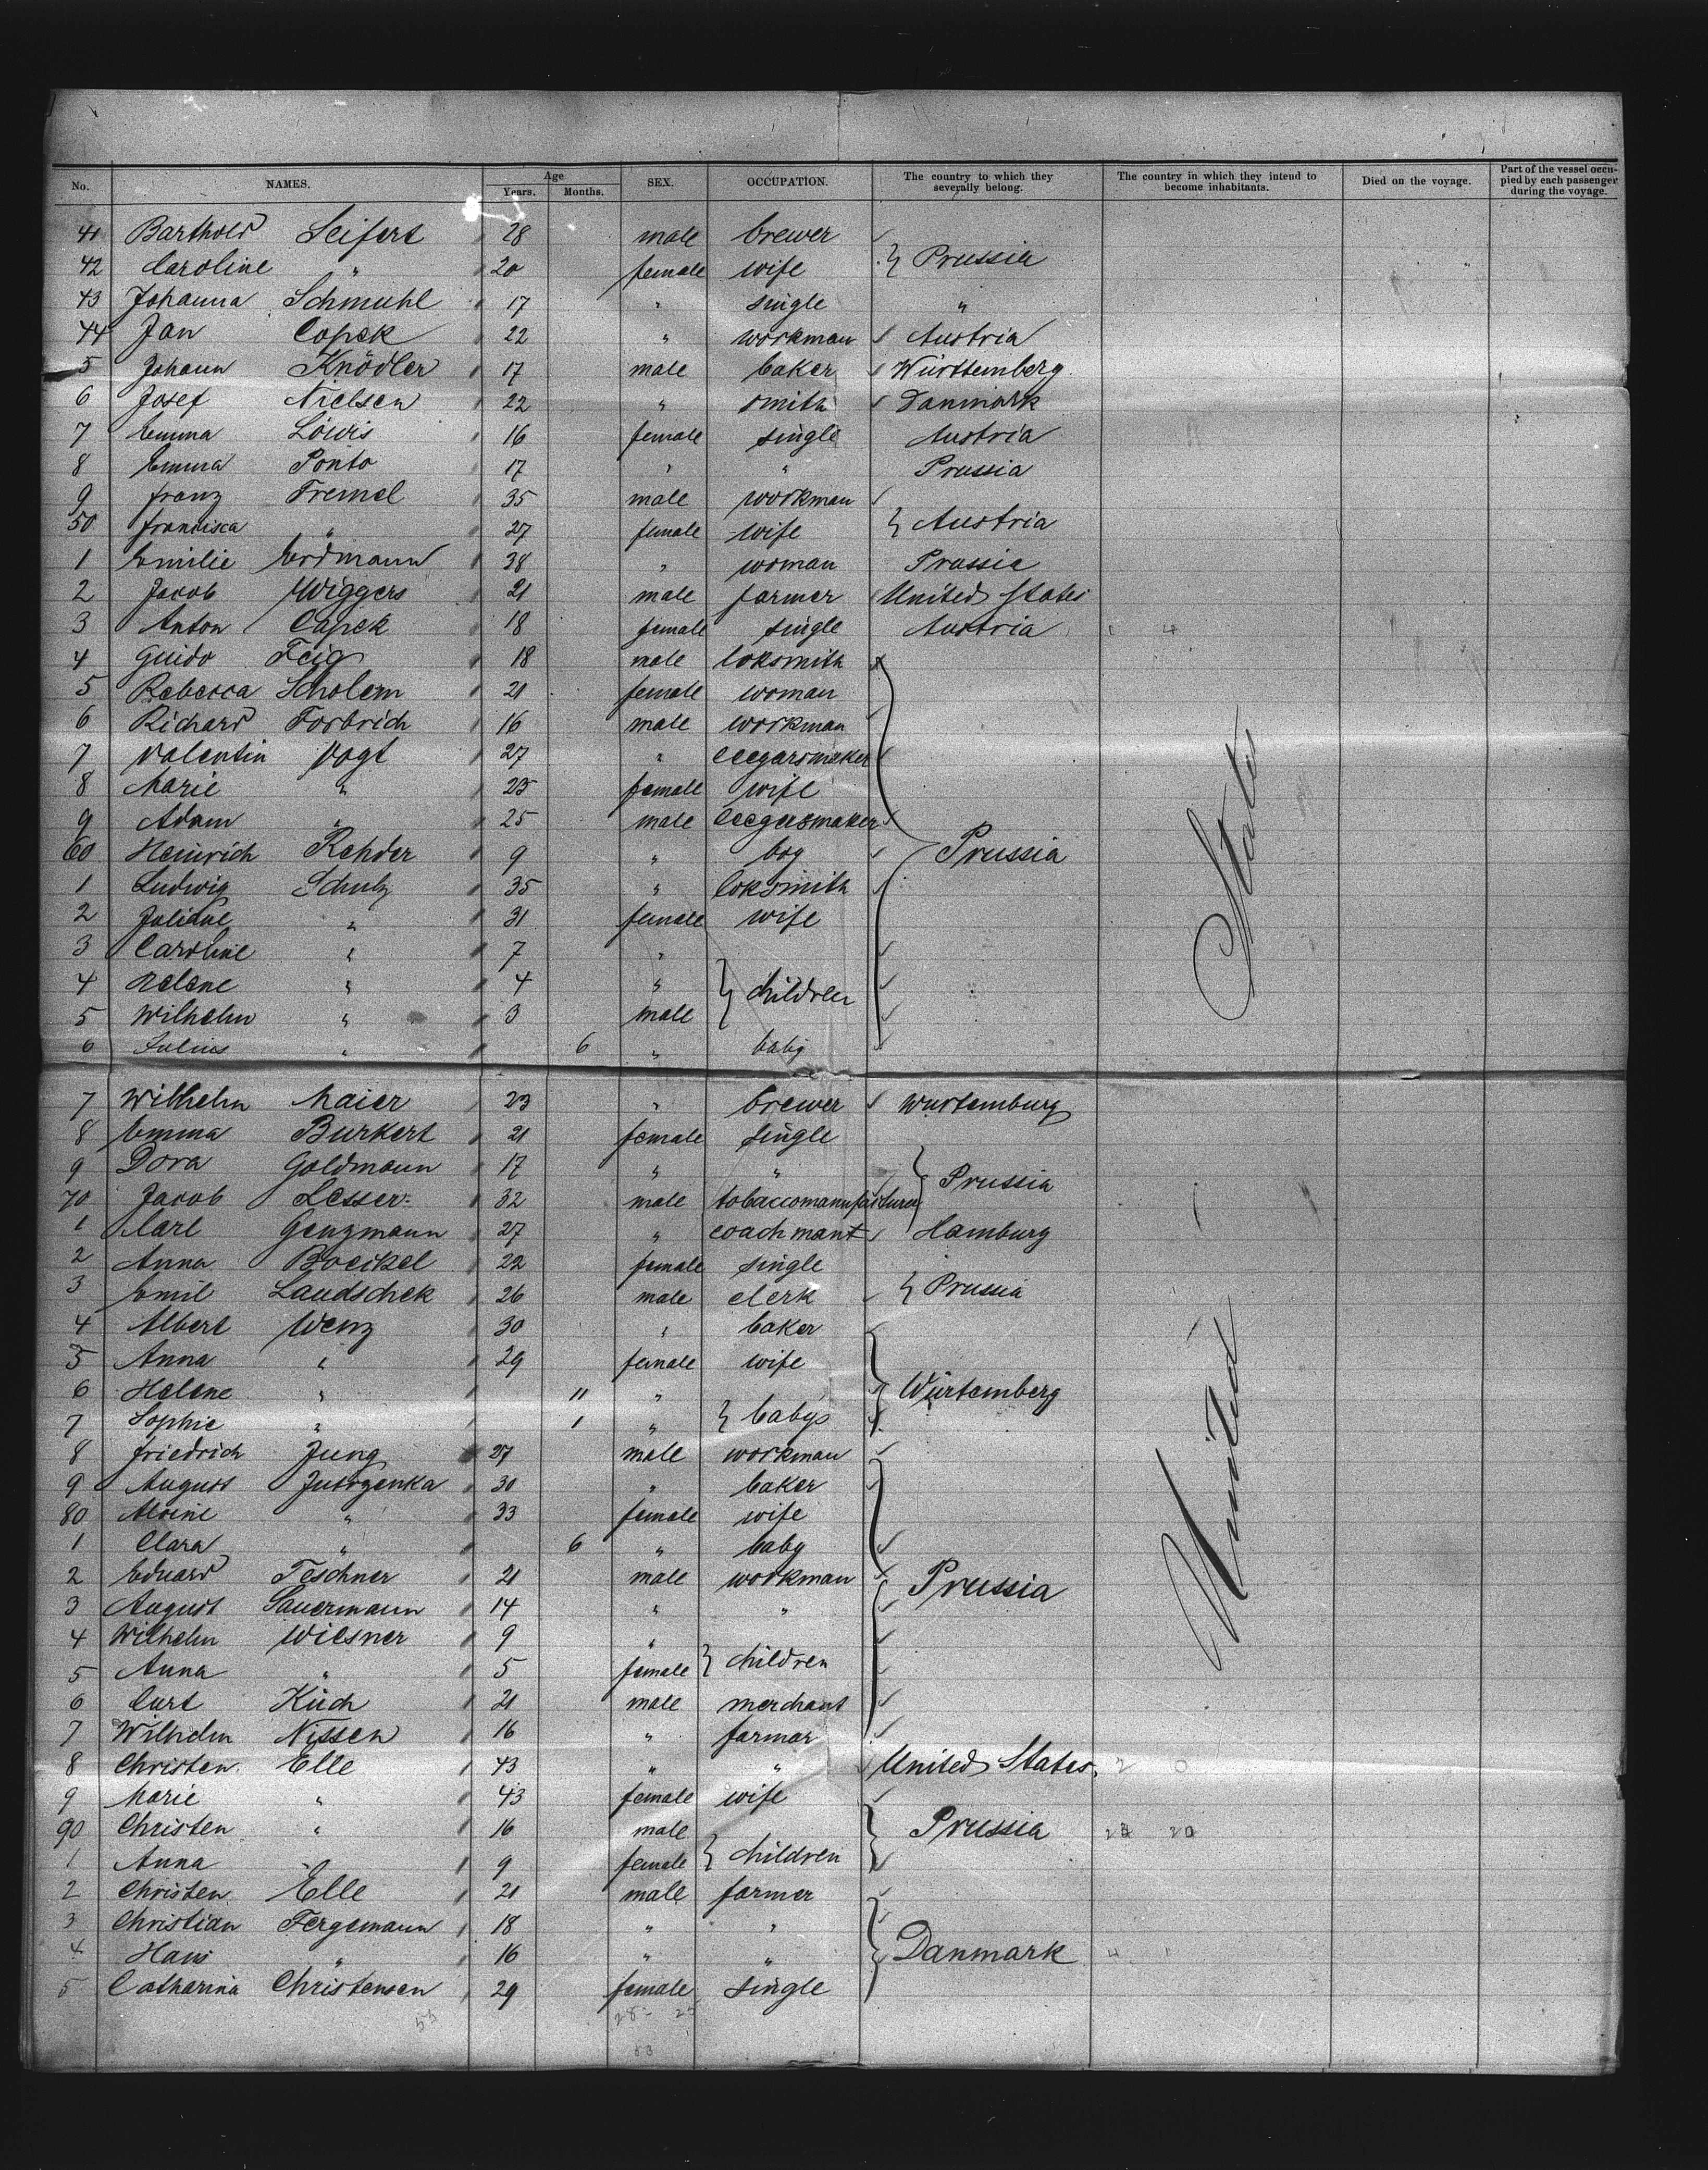 No. NAMES. Age Years. Months. SEX. OCCUPATION. The country to which they severally belong. The country in which they intend to become inhabitants. Died on the voyage. Part of the vessel occupied by each passenger during the voyage.
41 Barthold Seifert 28 male brewer
42 Caroline " 20 female wife } Prussia
43 Johanna Schmuhl 17 " single "
44 Jan Capek 22 " workman Austria
5 Johann Knödler 17 male baker Württemberg
6 Josef Nielsen 22 " smith Danmark
7 Emma Löwis 16 female single Austria
8 Emma Ponto 17 " " Prussia
9 Franz Tremel 35 male workman
50 Francisca " 27 female wife } Austria
1 Emilie Erdmann 38 " woman Prussia
2 Jacob Wiggers 21 male farmer United States
3 Anton Capek 18 female single Austria
4 Guido Feig 18 male loksmith
5 Rebecca Scholem 21 female woman
6 Richard Forbrich 16 male workman
7 Valentin Vogt 27 " ceegarsmaker
8 Marie " 25 female wife
9 Adam " 25 male ceegarsmaker
60 Heinrich Rehder 9 " boy Prussia
1 Ludwig Schulz 35 " loksmith
2 Juliane " 31 female wife
3 Caroline " 7 "
4 Helene " 4 " } children
5 Wilhelm " 3 male
6 Julius " 6 " baby
States
7 Wilhelm Maier 23 " brewer Wurtemburg
8 Emma Burkert 21 female single
9 Dora Goldmann 17 " "
70 Jacob Lesser 32 male tobaccomanufacturer } Prussia
1 Carl Ganzmann 27 " coachmant Hamburg
2 Anna Boeckel 22 female single
3 Emil Laudschek 26 male clerk } Prussia
4 Albert Wenz 30 " baker
5 Anna " 29 female wife
6 Helene " 11 " Würtemberg
7 Sophie " 1 " } babys
8 Friedrich Jung 27 male workman
9 August Jutrzenka 30 " baker
80 Alvine " 33 female wife
1 Clara " 6 " baby
2 Eduard Teschner 21 male workman Prussia
3 August Sauermann 14 " "
4 Wilhelm Wiesner 9 "
5 Anna " 5 female } children
6 Curt Küch 21 male merchant
7 Wilhelm Nissen 16 " farmar
United
8 Christen Elle 43 " " United States. 2 0
9 Marie " 43 female wife
90 Christen " 16 male Prussia
1 Anna " 9 female } children
2 Christen Elle 21 male farmer
3 Christian Fergemann 18 " "
4 Hans " 16 " " Danmark
5 Catharina Christensen 29 female single
53 28 25
53